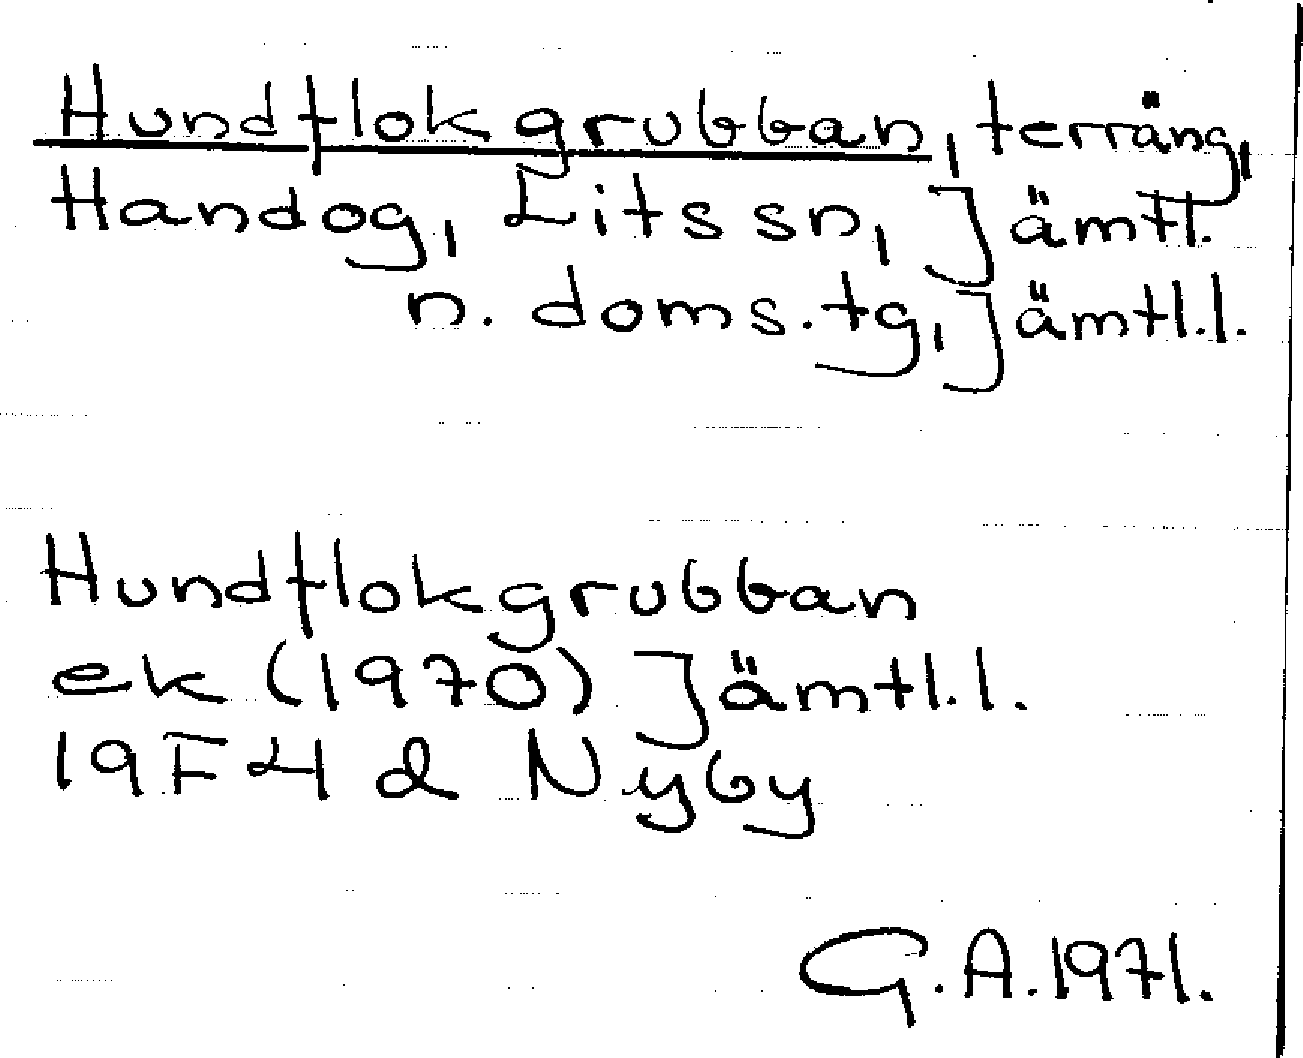 Hundflokgrubban, terräng,
Handog, Lits sn, Jämtl.
n. doms. tg, Jämtl. l.
Hundflokgrubban
ek (1970) Jämtl. l.
19F4d Nyby
G. A. 1971.